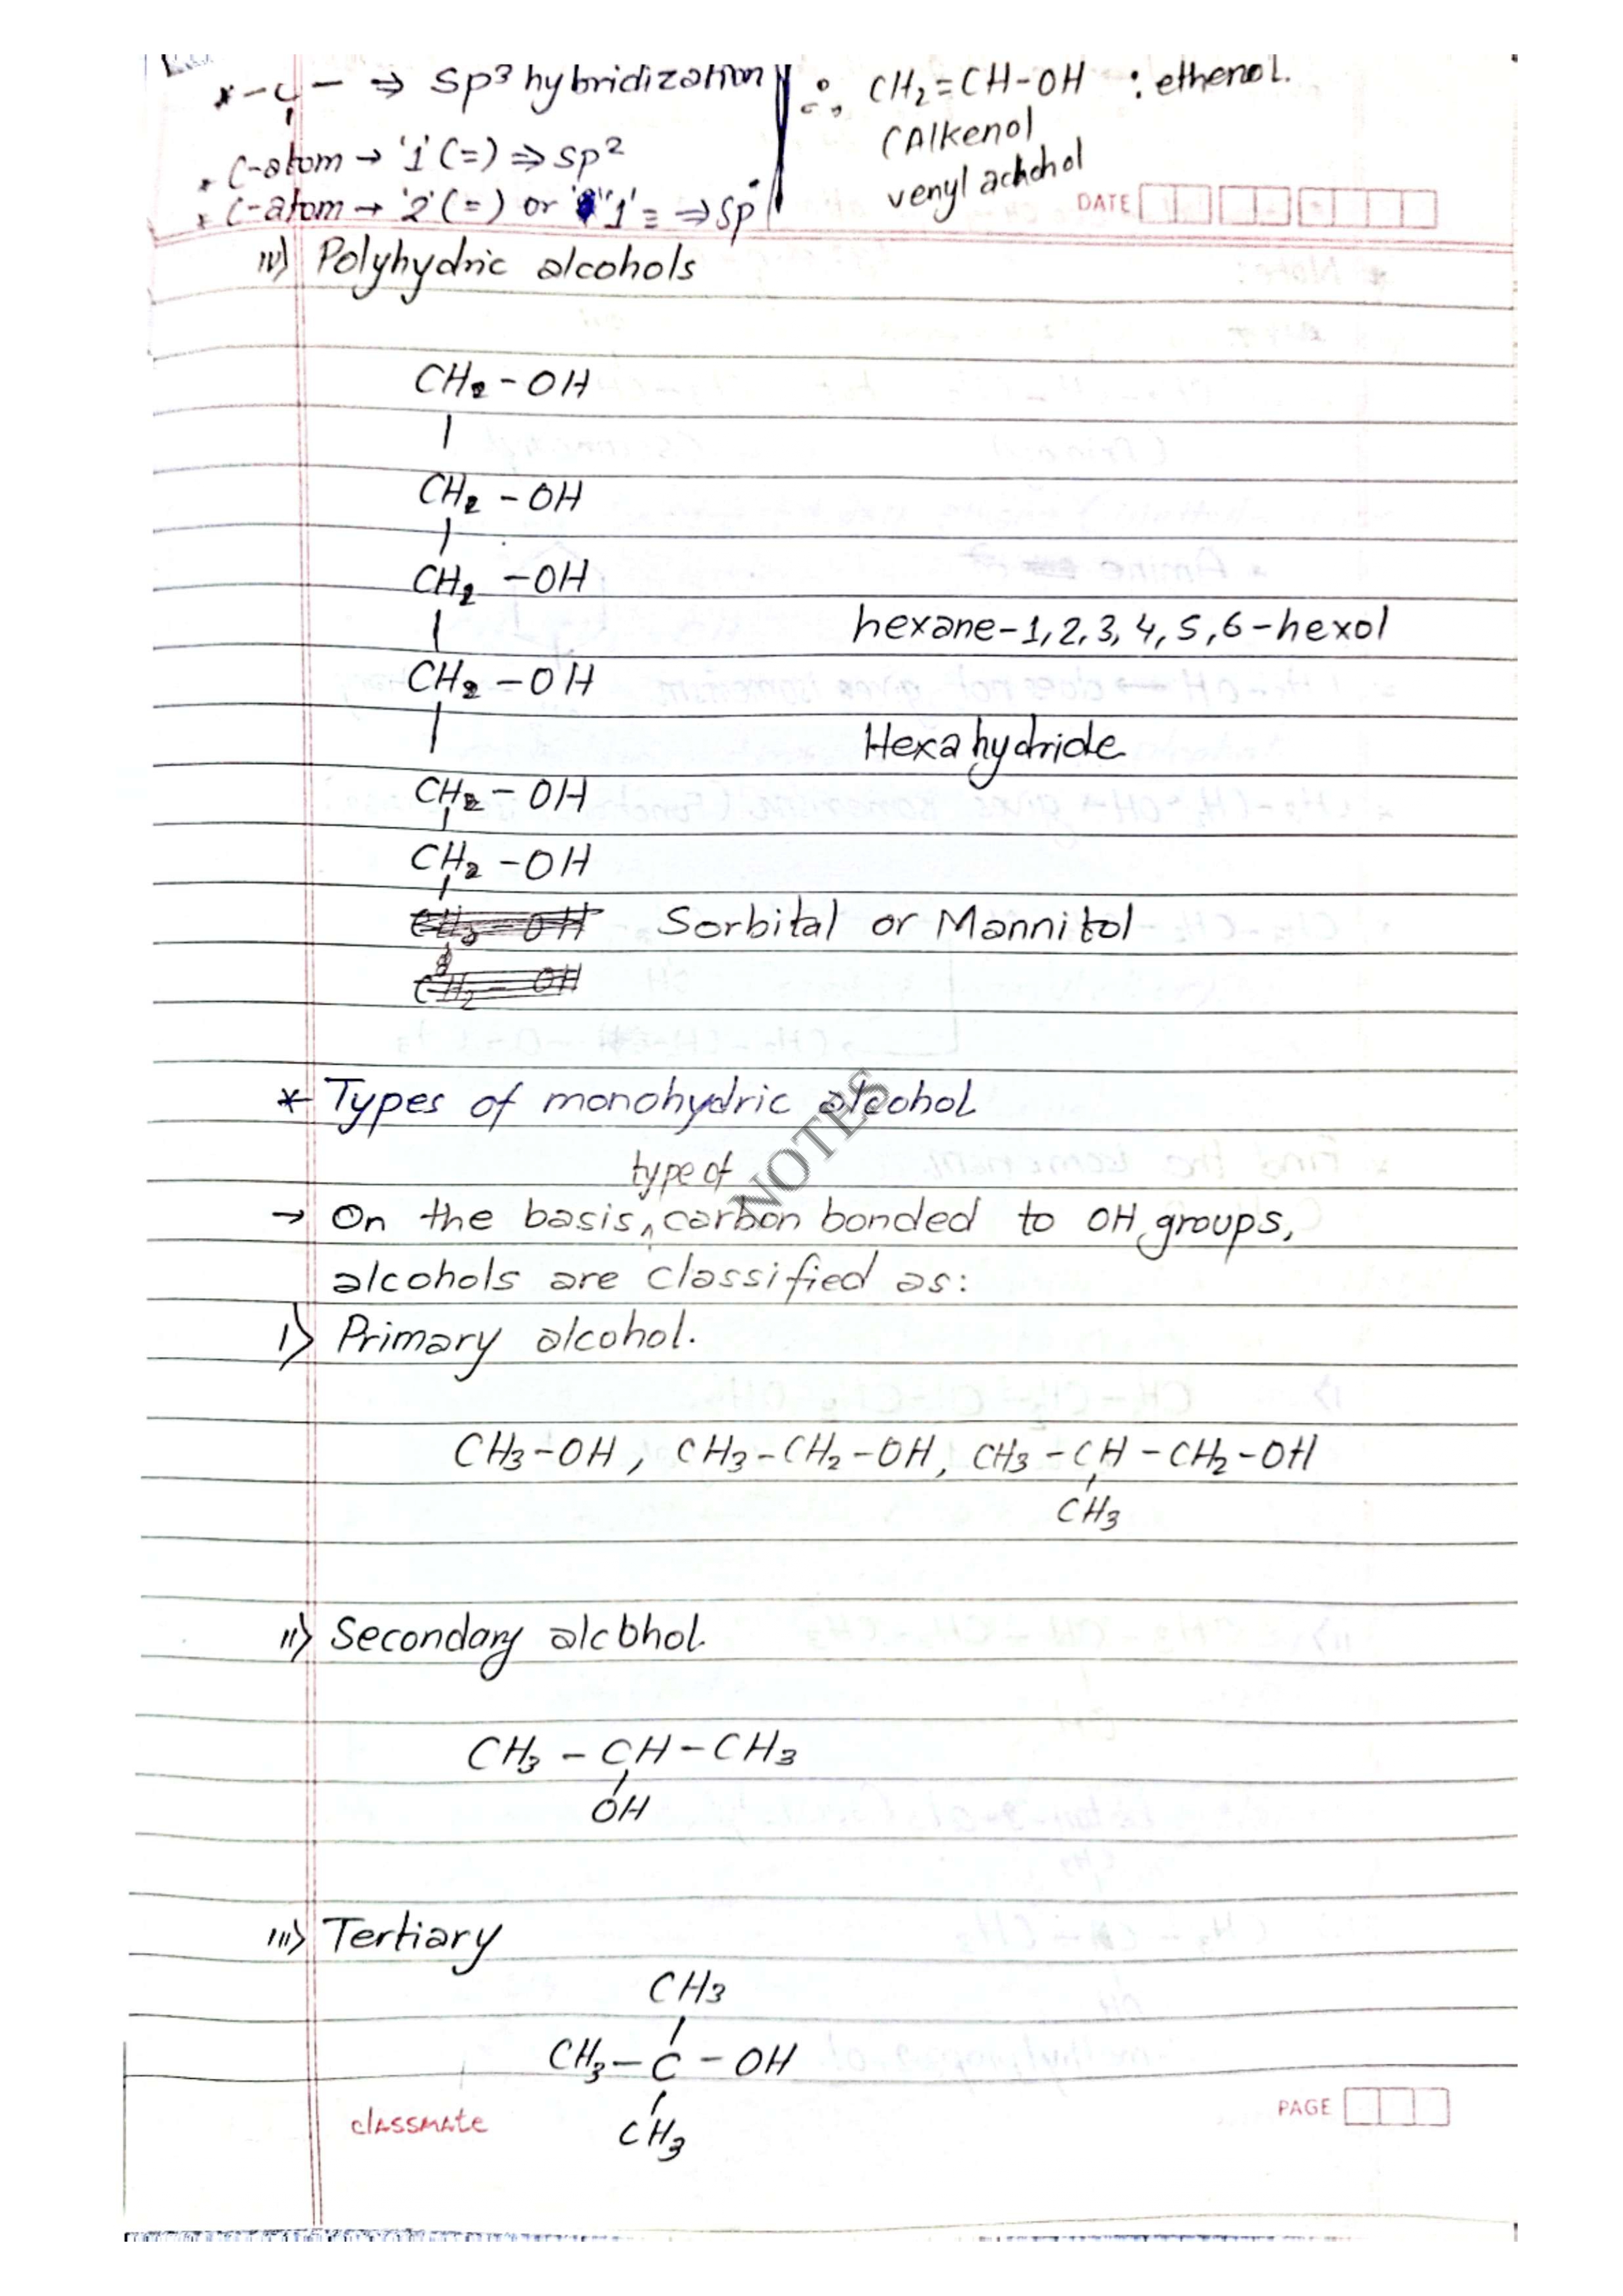 * - C - ⇒ sp³ hybridization
|
* C-atom → '1' (=) ⇒ sp²
* C-atom → '2' (=) or '1' ≡ ⇒ sp
∴ CH₂=CH-OH : ethenol.
(Alkenol
venyl achohol
DATE
iv) Polyhydric alcohols
CH₂ - OH
|
CH₂ - OH
|
CH₂ - OH
|
hexane-1,2,3,4,5,6-hexol
CH₂ - OH
|
Hexahydride
CH₂ - OH
|
CH₂ - OH
|
CH₂ - OH Sorbital or Mannitol
CH₂ - OH
* Types of monohydric alcohol
NOTES
type of
→ On the basis ‸ carbon bonded to OH groups,
alcohols are classified as:
i) Primary alcohol.
CH₃-OH, CH₃-CH₂-OH, CH₃-CH-CH₂-OH
|
CH₃
ii) Secondary alcohol
CH₃ - CH - CH₃
|
OH
iii) Tertiary
CH₃
|
CH₃ - C - OH
|
CH₃
classmate
PAGE